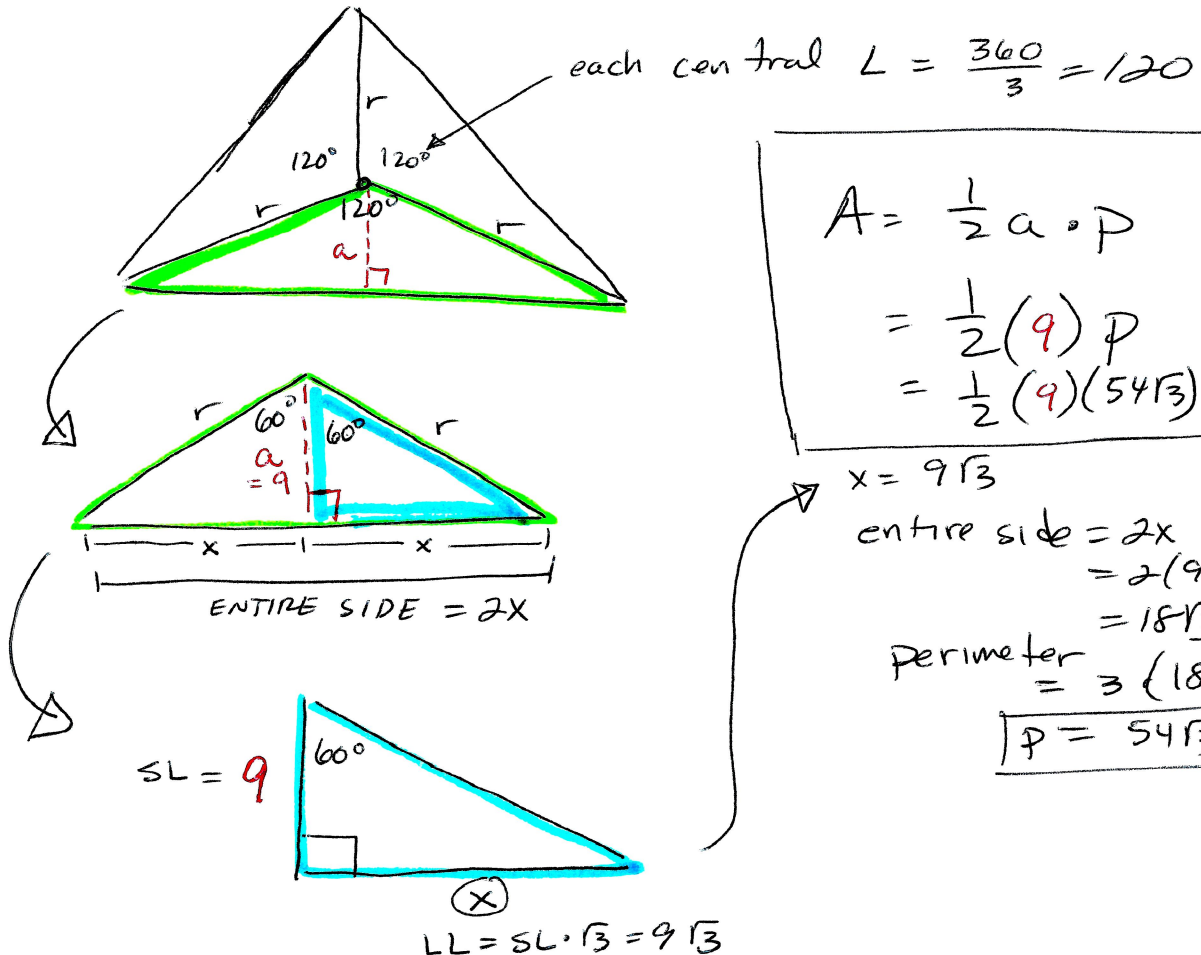 each central L = 360/3 = 120
r
120° 120°
r 120° r
a
A = 1/2 a · p
= 1/2 (9) p
= 1/2 (9)(54√3)
r 60° 60° r
a
= 9
x x
ENTIRE SIDE = 2X
x = 9√3
entire side = 2x
= 2(9
= 18√
perimeter
= 3 (18
p = 54√3
SL = 9 60°
x
LL = SL·√3 = 9√3